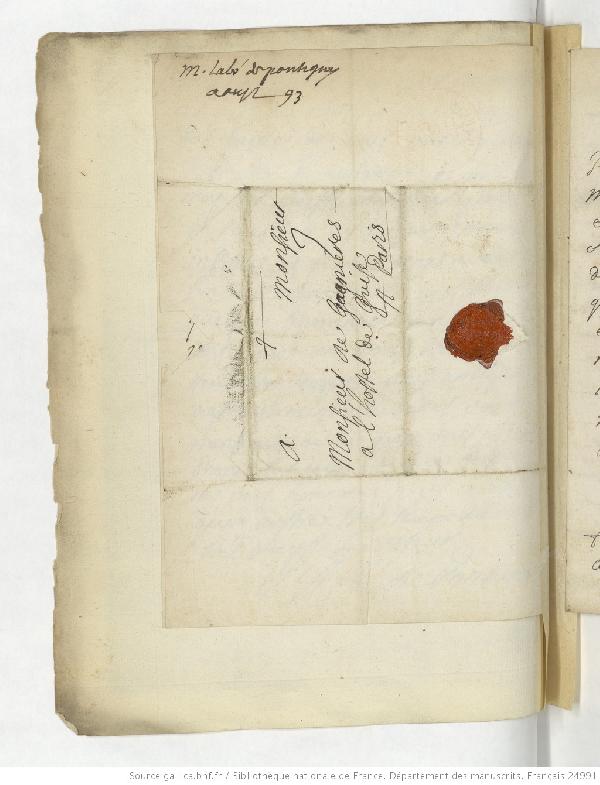 m. l'abé de pontigny
aoust 93
A Monsieur
Monsieur de Gagnieres
a l'hostel de Guise
A Paris
Source gallica.bnf.fr / Bibliothèque nationale de France. Département des manuscrits. Français 24991